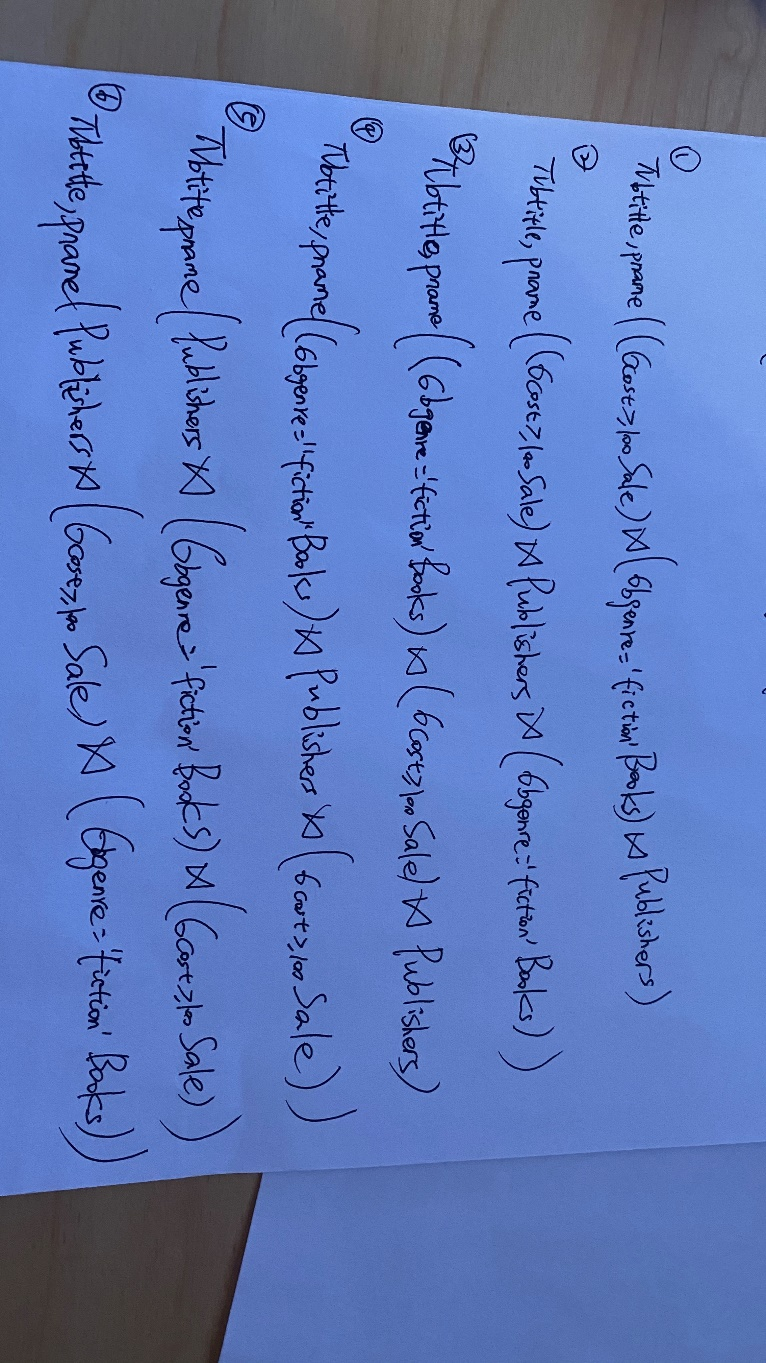 ①
πbtitle, pname ((σcost>100 Sale) ⋈ (σbgenre='fiction' Books) ⋈ Publishers)
②
πbtitle, pname ((σcost>100 Sale) ⋈ Publishers ⋈ (σbgenre='fiction' Books))
③ πbtitle, pname ((σbgenre='fiction' Books) ⋈ (σcost>100 Sale) ⋈ Publishers)
④
πbtitle, pname ((σbgenre="fiction' Books) ⋈ Publishers ⋈ (σcost>100 Sale))
⑤
πbtitle, pname (Publishers ⋈ (σbgenre='fiction' Books) ⋈ (σcost>100 Sale))
⑥
πbtitle, pname (Publishers ⋈ (σcost>100 Sale) ⋈ (σbgenre="fiction' Books))